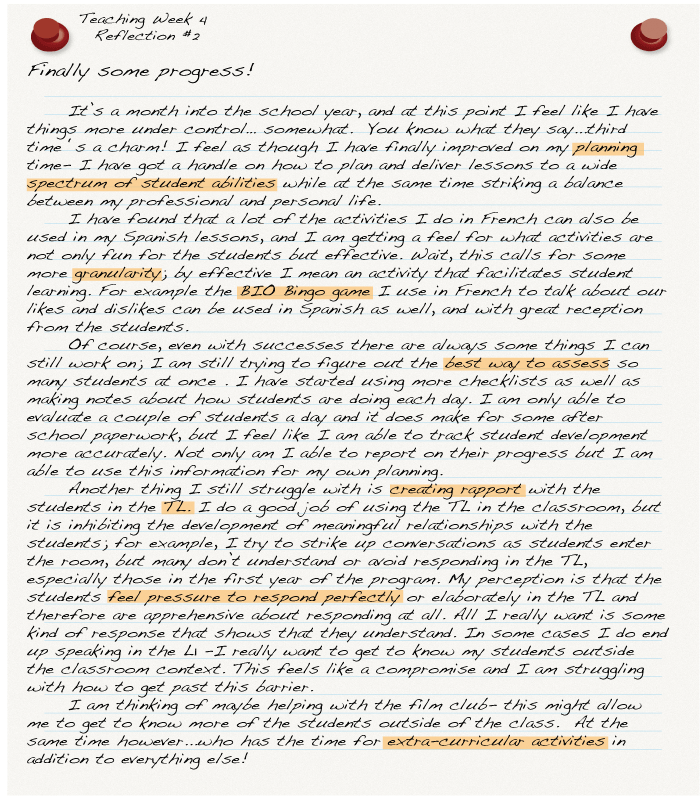 Teaching Week 4
Reflection #2
Finally some progress!
It's a month into the school year, and at this point I feel like I have
things more under control... somewhat. You know what they say...third
time's a charm! I feel as though I have finally improved on my planning
time- I have got a handle on how to plan and deliver lessons to a wide
spectrum of student abilities while at the same time striking a balance
between my professional and personal life.
I have found that a lot of the activities I do in French can also be
used in my Spanish lessons, and I am getting a feel for what activities are
not only fun for the students but effective. Wait, this calls for some
more granularity; by effective I mean an activity that facilitates student
learning. For example the BIO Bingo game I use in French to talk about our
likes and dislikes can be used in Spanish as well, and with great reception
from the students.
Of course, even with successes there are always some things I can
still work on; I am still trying to figure out the best way to assess so
many students at once . I have started using more checklists as well as
making notes about how students are doing each day. I am only able to
evaluate a couple of students a day and it does make for some after
school paperwork, but I feel like I am able to track student development
more accurately. Not only am I able to report on their progress but I am
able to use this information for my own planning.
Another thing I still struggle with is creating rapport with the
students in the TL. I do a good job of using the TL in the classroom, but
it is inhibiting the development of meaningful relationships with the
students; for example, I try to strike up conversations as students enter
the room, but many don't understand or avoid responding in the TL,
especially those in the first year of the program. My perception is that the
students feel pressure to respond perfectly or elaborately in the TL and
therefore are apprehensive about responding at all. All I really want is some
kind of response that shows that they understand. In some cases I do end
up speaking in the L1 -I really want to get to know my students outside
the classroom context. This feels like a compromise and I am struggling
with how to get past this barrier.
I am thinking of maybe helping with the film club- this might allow
me to get to know more of the students outside of the class. At the
same time however...who has the time for extra-curricular activities in
addition to everything else!